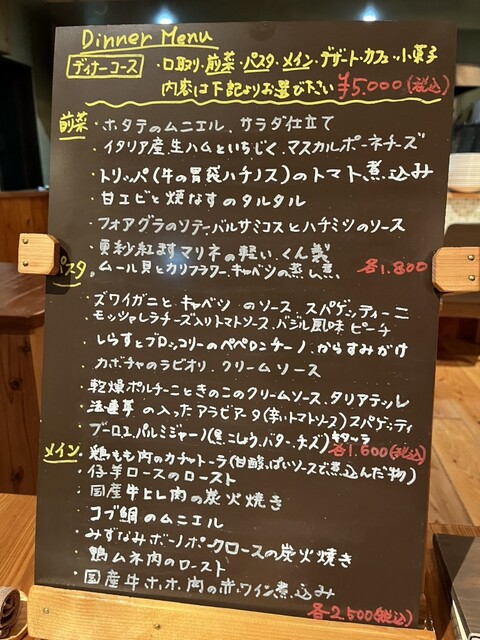 Dinner Menu
ディナーコース ・口取り・前菜・パスタ・メイン・デザート・カフェ・小菓子
内容は下記よりお選び下さい ¥5.000(税込)
前菜 ・ホタテのムニエル、サラダ仕立て
・イタリア産生ハムといちじく、マスカルポーネチーズ
・トリッパ(牛の胃袋ハチノス)のトマト煮込み
・甘エビと焼なすのタルタル
・フォアグラのソテーバルサミコスとハチミツのソース
紅ますマリネの軽いくん製
・ムール貝とカリフラワー、キャベツの蒸し煮 各1.800
パスタ
・ズワイガニとキャベツのソース、スパゲッティーニ
・モッツァレラチーズ入りトマトソース、バジル風味 ピーチ
・しらすとブロッコリーのペペロンチーノ、からすみがけ
・カボチャのラビオリ、クリームソース
・乾燥ポルチーニときのこのクリームソース、タリアテッレ
の入ったアラビアータ(辛いトマトソース)スパゲッティ
パルミジャーノ(黒こしょう、バター、チーズ)キターラ
各1.600(税込)
メイン ・鶏もも肉のカチャトーラ(甘酸っぱいソースで煮込んだ物)
・仔羊ロースのロースト
・国産牛ヒレ肉の炭火焼き
・コブ鯛のムニエル
・みずなみボーノポークロースの炭火焼き
・鴨ムネ肉のロースト
・国産牛ホホ肉の赤ワイン煮込み
各2.500(税込)